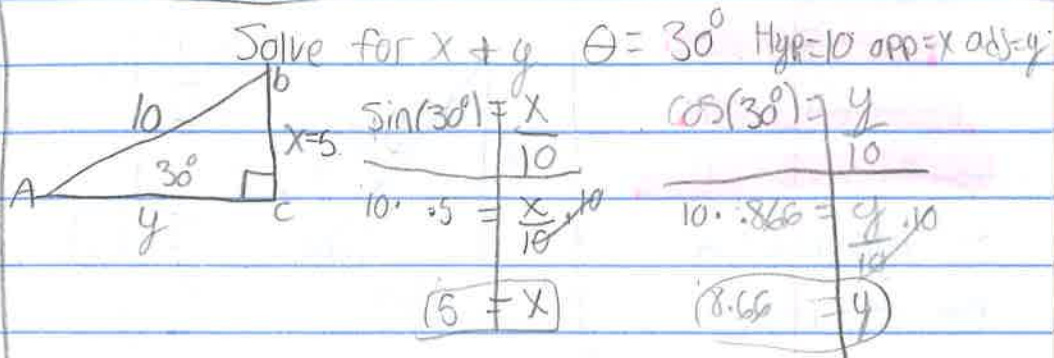 Solve for x + y θ = 30° Hyp=10 opp=x adj=y
b
10
x=5
30°
A
C
y
sin(30°) = x/10
10 · .5 = x/10 · 10
5 = x
cos(30°) = y/10
10 · .866 = y/10 · 10
8.66 = y